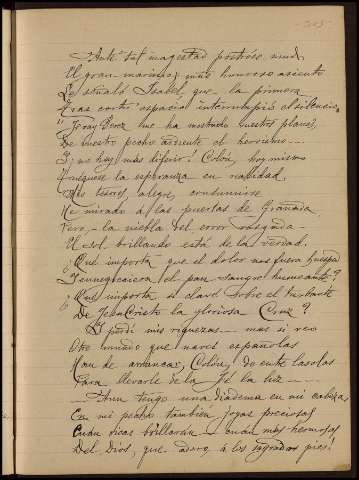 Ante tal magestad postróse mudo
El gran marino; mas honroso asiento
Le señaló Isabel, que la primera
Tras corto espacio interrumpió el silencio.
"Fray Perez me ha mostrado vuestros planes,
De vuestro pecho ardiente el heroismo...
Y no hay mas diferir. Colón, hoy mismo
la esperanza en realidad.
Mis tesoros, alegre, consumirse
He mirado á las puertas de Granada,
Pero, la niebla del error rasgada
El sol brillando está de la verdad.
¿Qué importa que el dolor nos fuera huesped
Y ennegreciera el pan sangre humeante?
¿Qué importa si clavó sobre el turbante
De Jesu Cristo la gloriosa Cruz?
perdí mis riquezas... mas si veo
Otro mundo que naves españolas
Han de arrancar, Colón, de entre las olas
Para llevarle de la Fé la luz...
Aun tengo una diadema en mi cabeza
En mi pecho también joyas preciosas
Cuán ricas brillarán... cuál mas hermosas
Del Dios, que adoro á los sagrados pies!